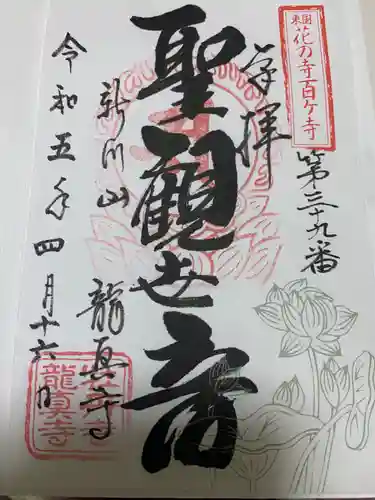 東国花の寺百ヶ寺
第三十九番
奉拝
聖観世音
新川山 龍真寺
令和五年四月十六日
龍真寺